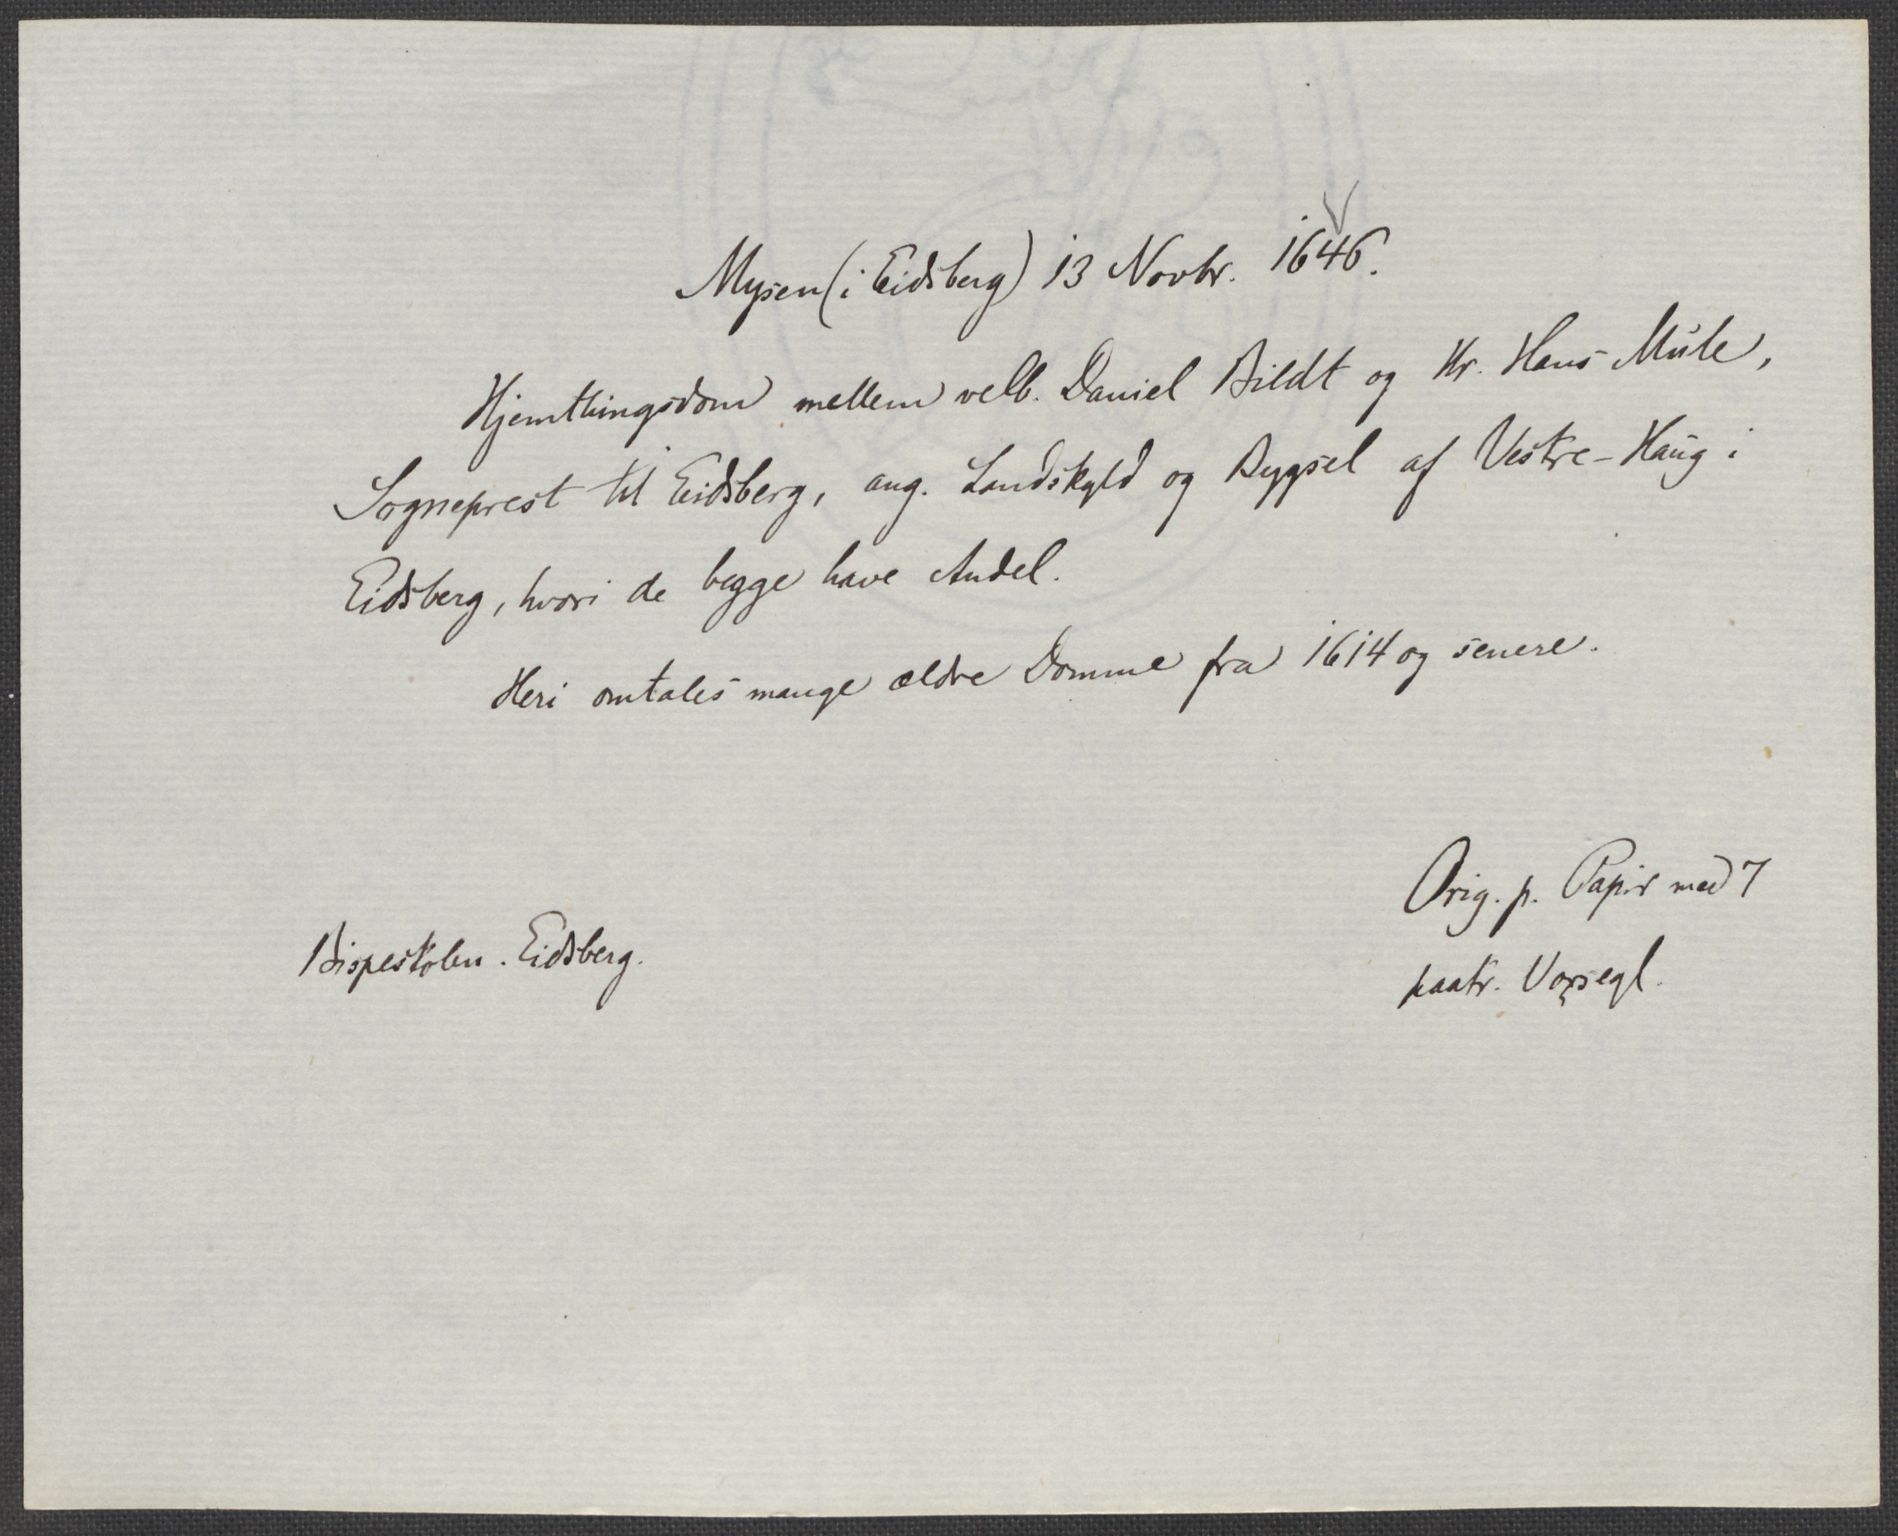 Mysen (i Eidsberg) 13 Novbr. 1646.
Hjemthingsdom mellem velb. Daniel Bildt og Hr. Hans Mule,
Sogneprest til Eidsberg, ang. Landskyld og Bygsel af Vestre-Haug i
Eidsberg, hvori de begge have Andel.
Heri omtales mange ældre Domme fra 1614 og senere.
Orig. p. Papir med 7
paatr. Voxsegl.
Bispestolen. Eidsberg.